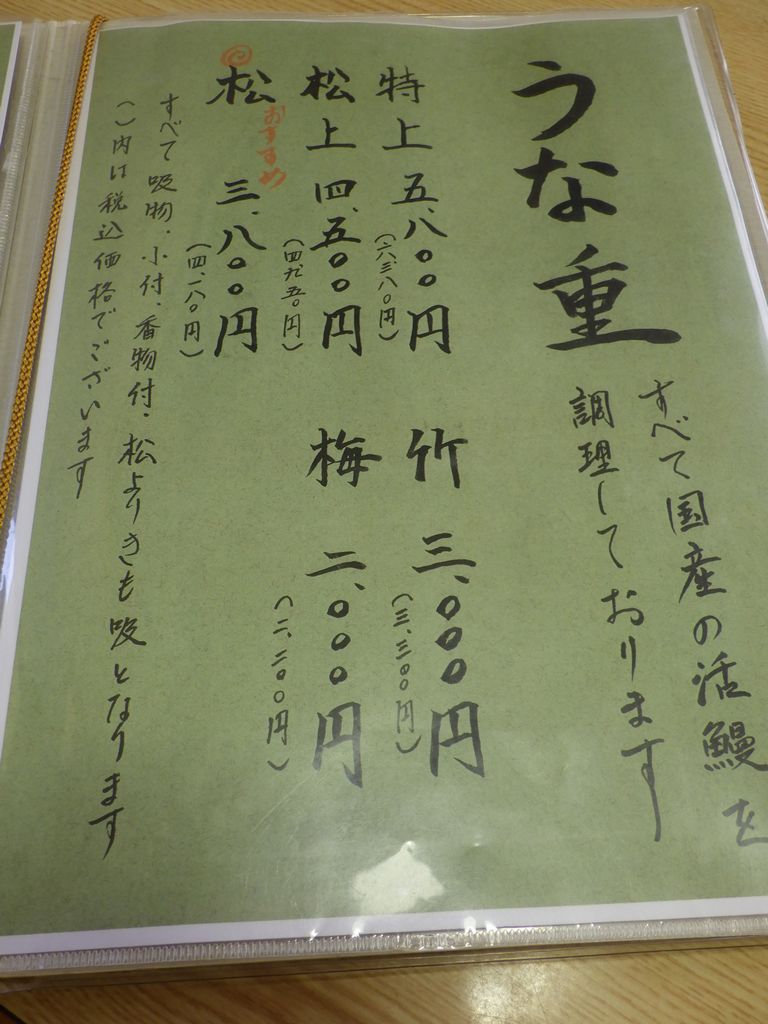 うな重
すべて国産の活鰻を
調理しております
特上 五、八〇〇円
(六、三八〇円)
松上 四、五〇〇円
(四、九五〇円)
松 三、八〇〇円
おすすめ
(四、一八〇円)
竹 三、〇〇〇円
(三、三〇〇円)
梅 二、〇〇〇円
(二、二〇〇円)
すべて吸物、小付、香物付、松よりきも吸となります
( )内は税込価格でございます